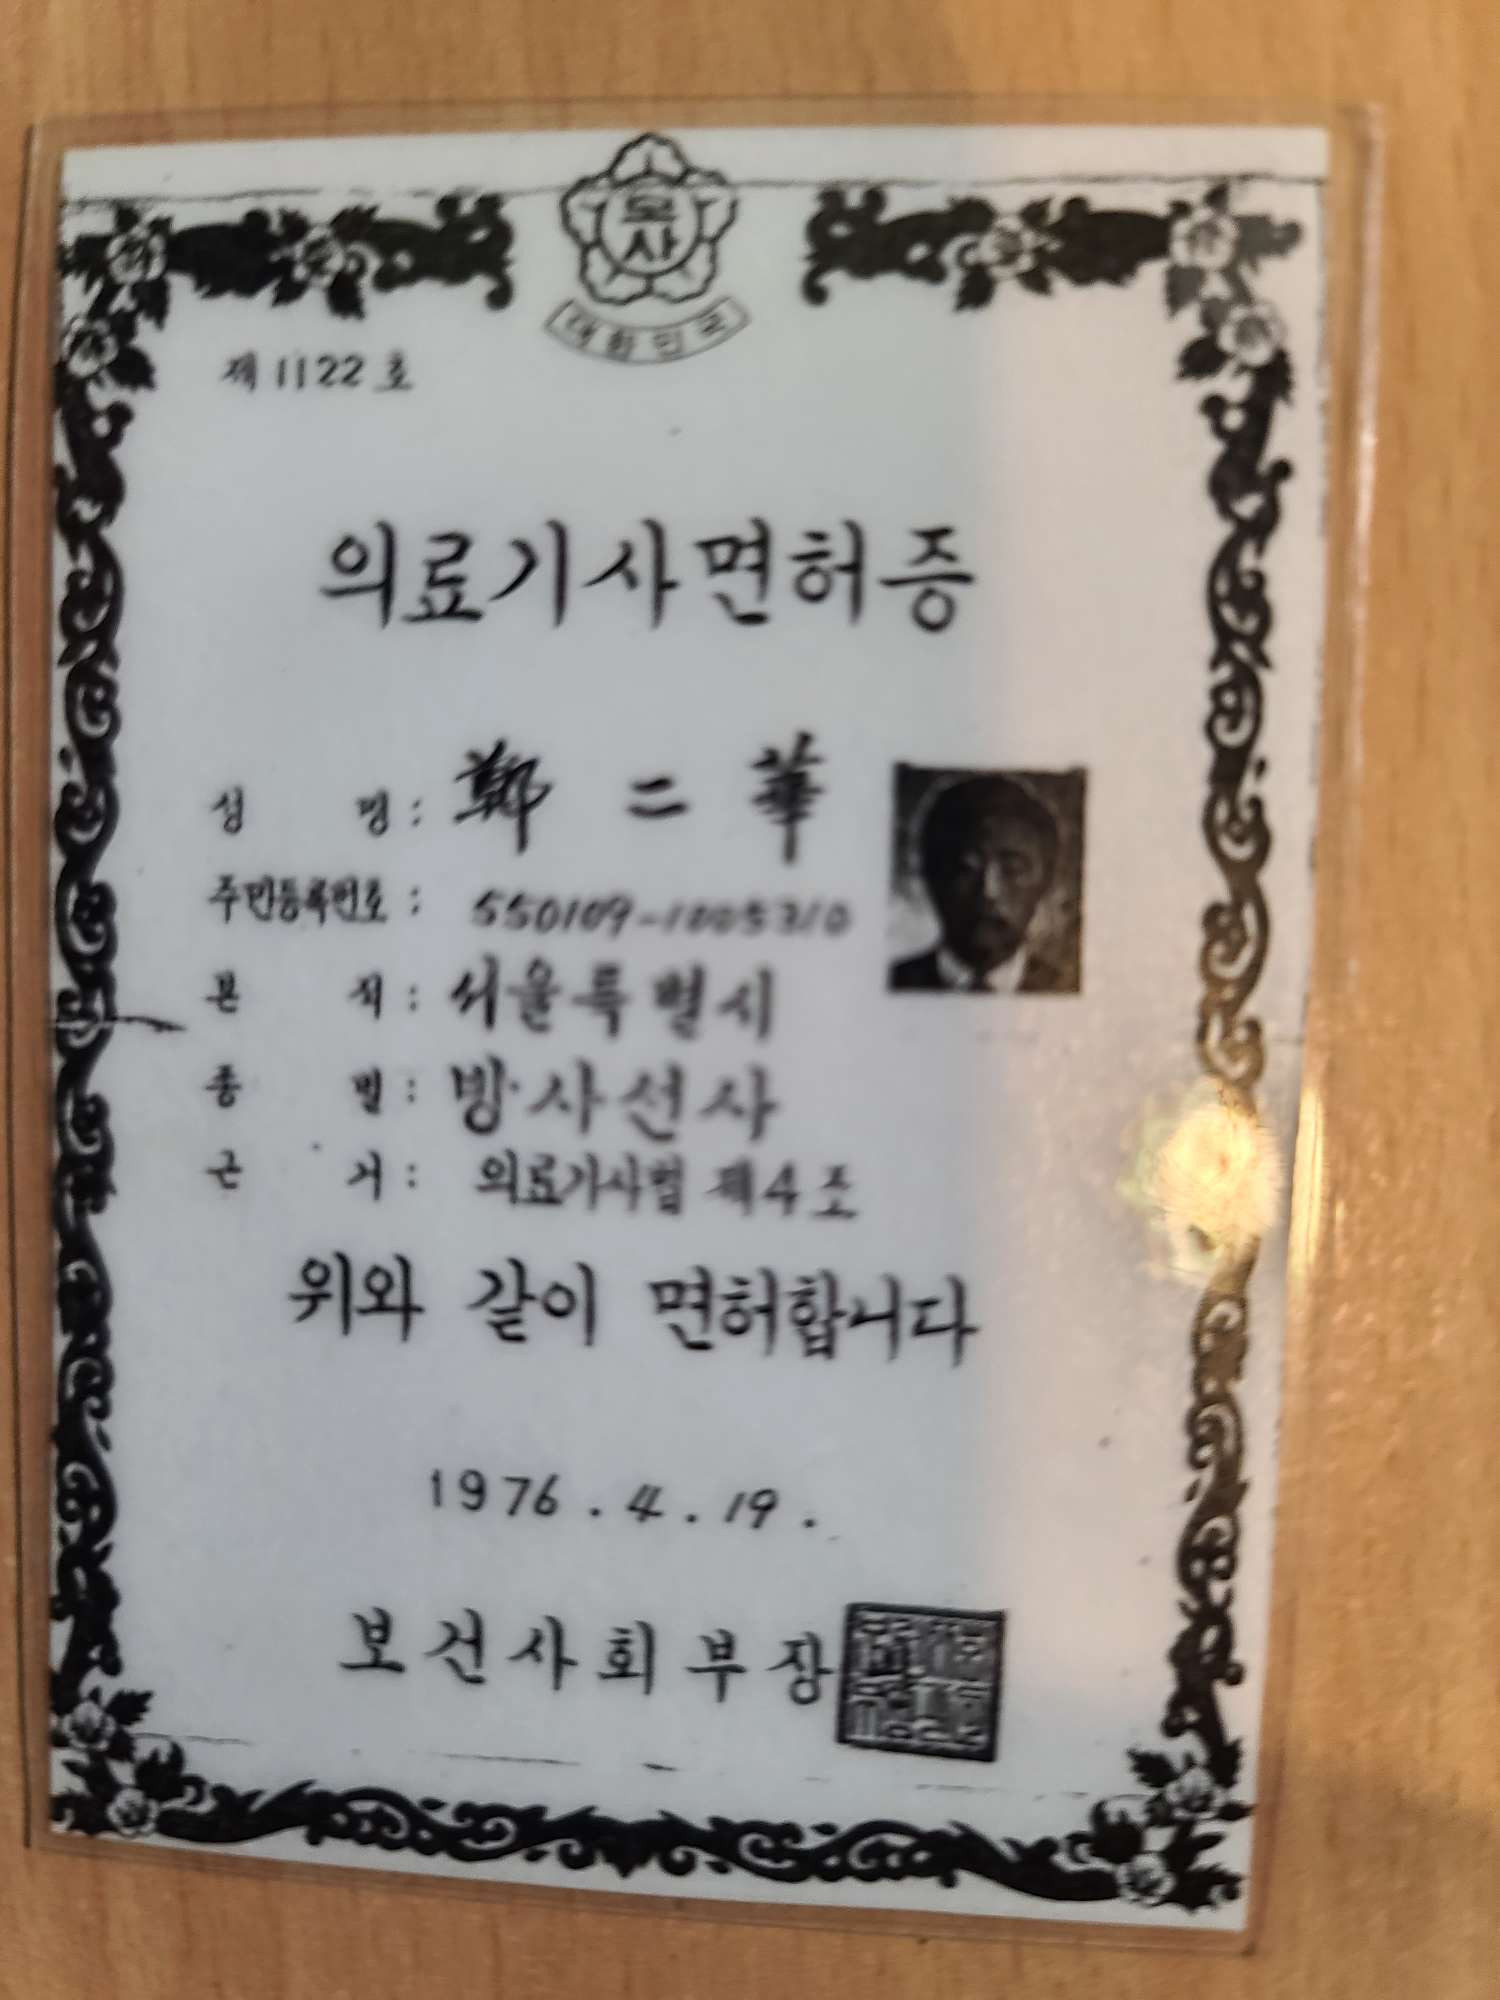 보사
대한민국
제1122호
의료기사면허증
성 명: 鄭 二 華
주민등록번호: 550109-1005310
본 적: 서울특별시
종 별: 방사선사
근 거: 의료기사법 제4조
위와 같이 면허합니다
1976.4.19.
보건사회부장